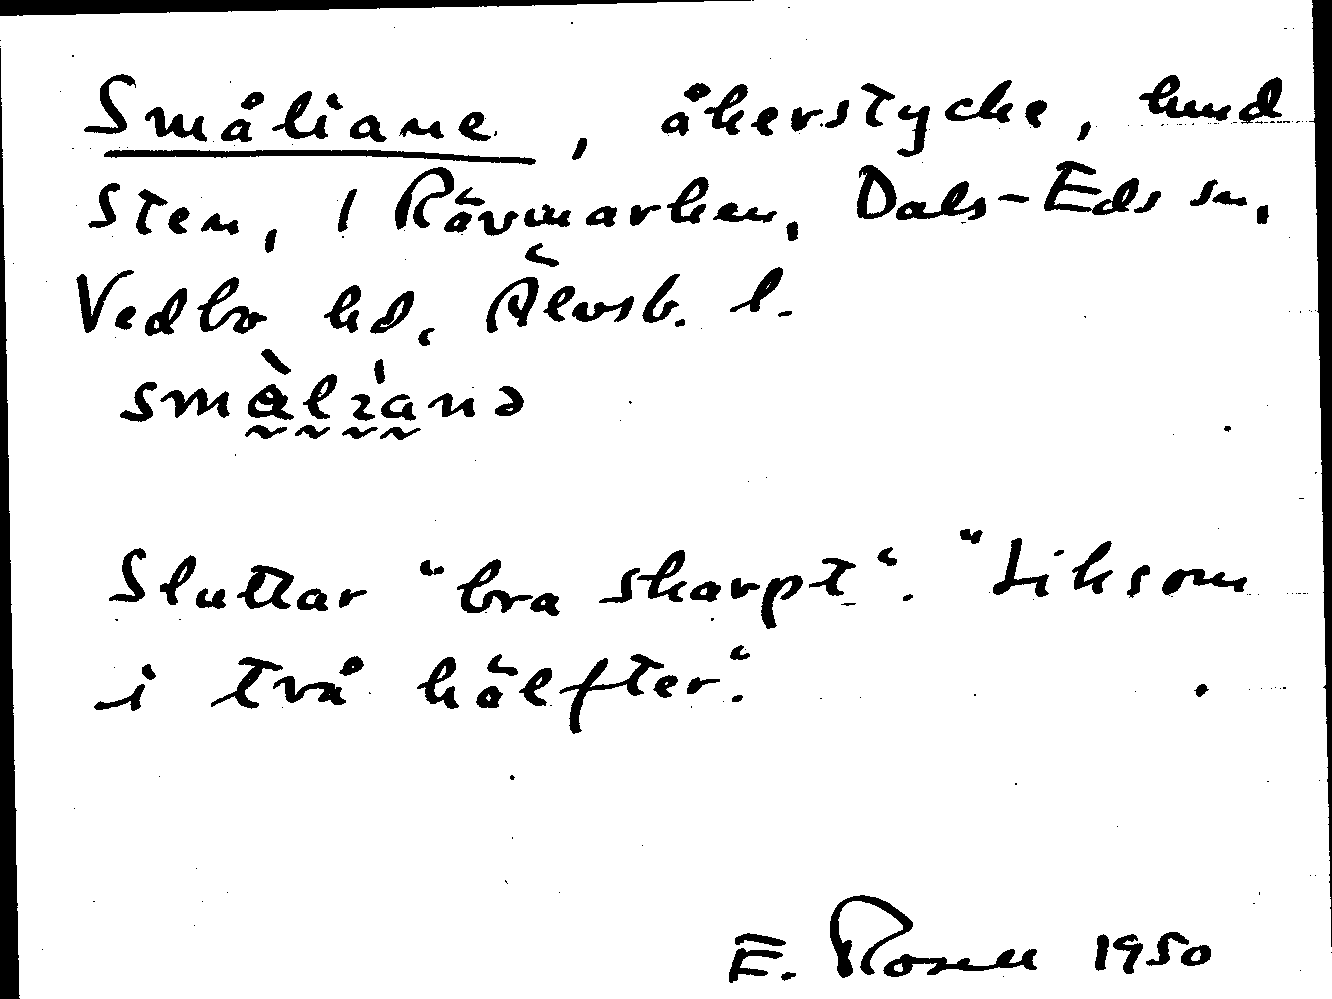 Småliane, åkerstycke, hmd
Sten, 1 Rävmarken, Dals-Eds sn,
Vedbo hd, Älvsb. l.
smàlianə
Sluttar "bra skarpt". "Liksom
i två hälfter".
E. Rosell 1950